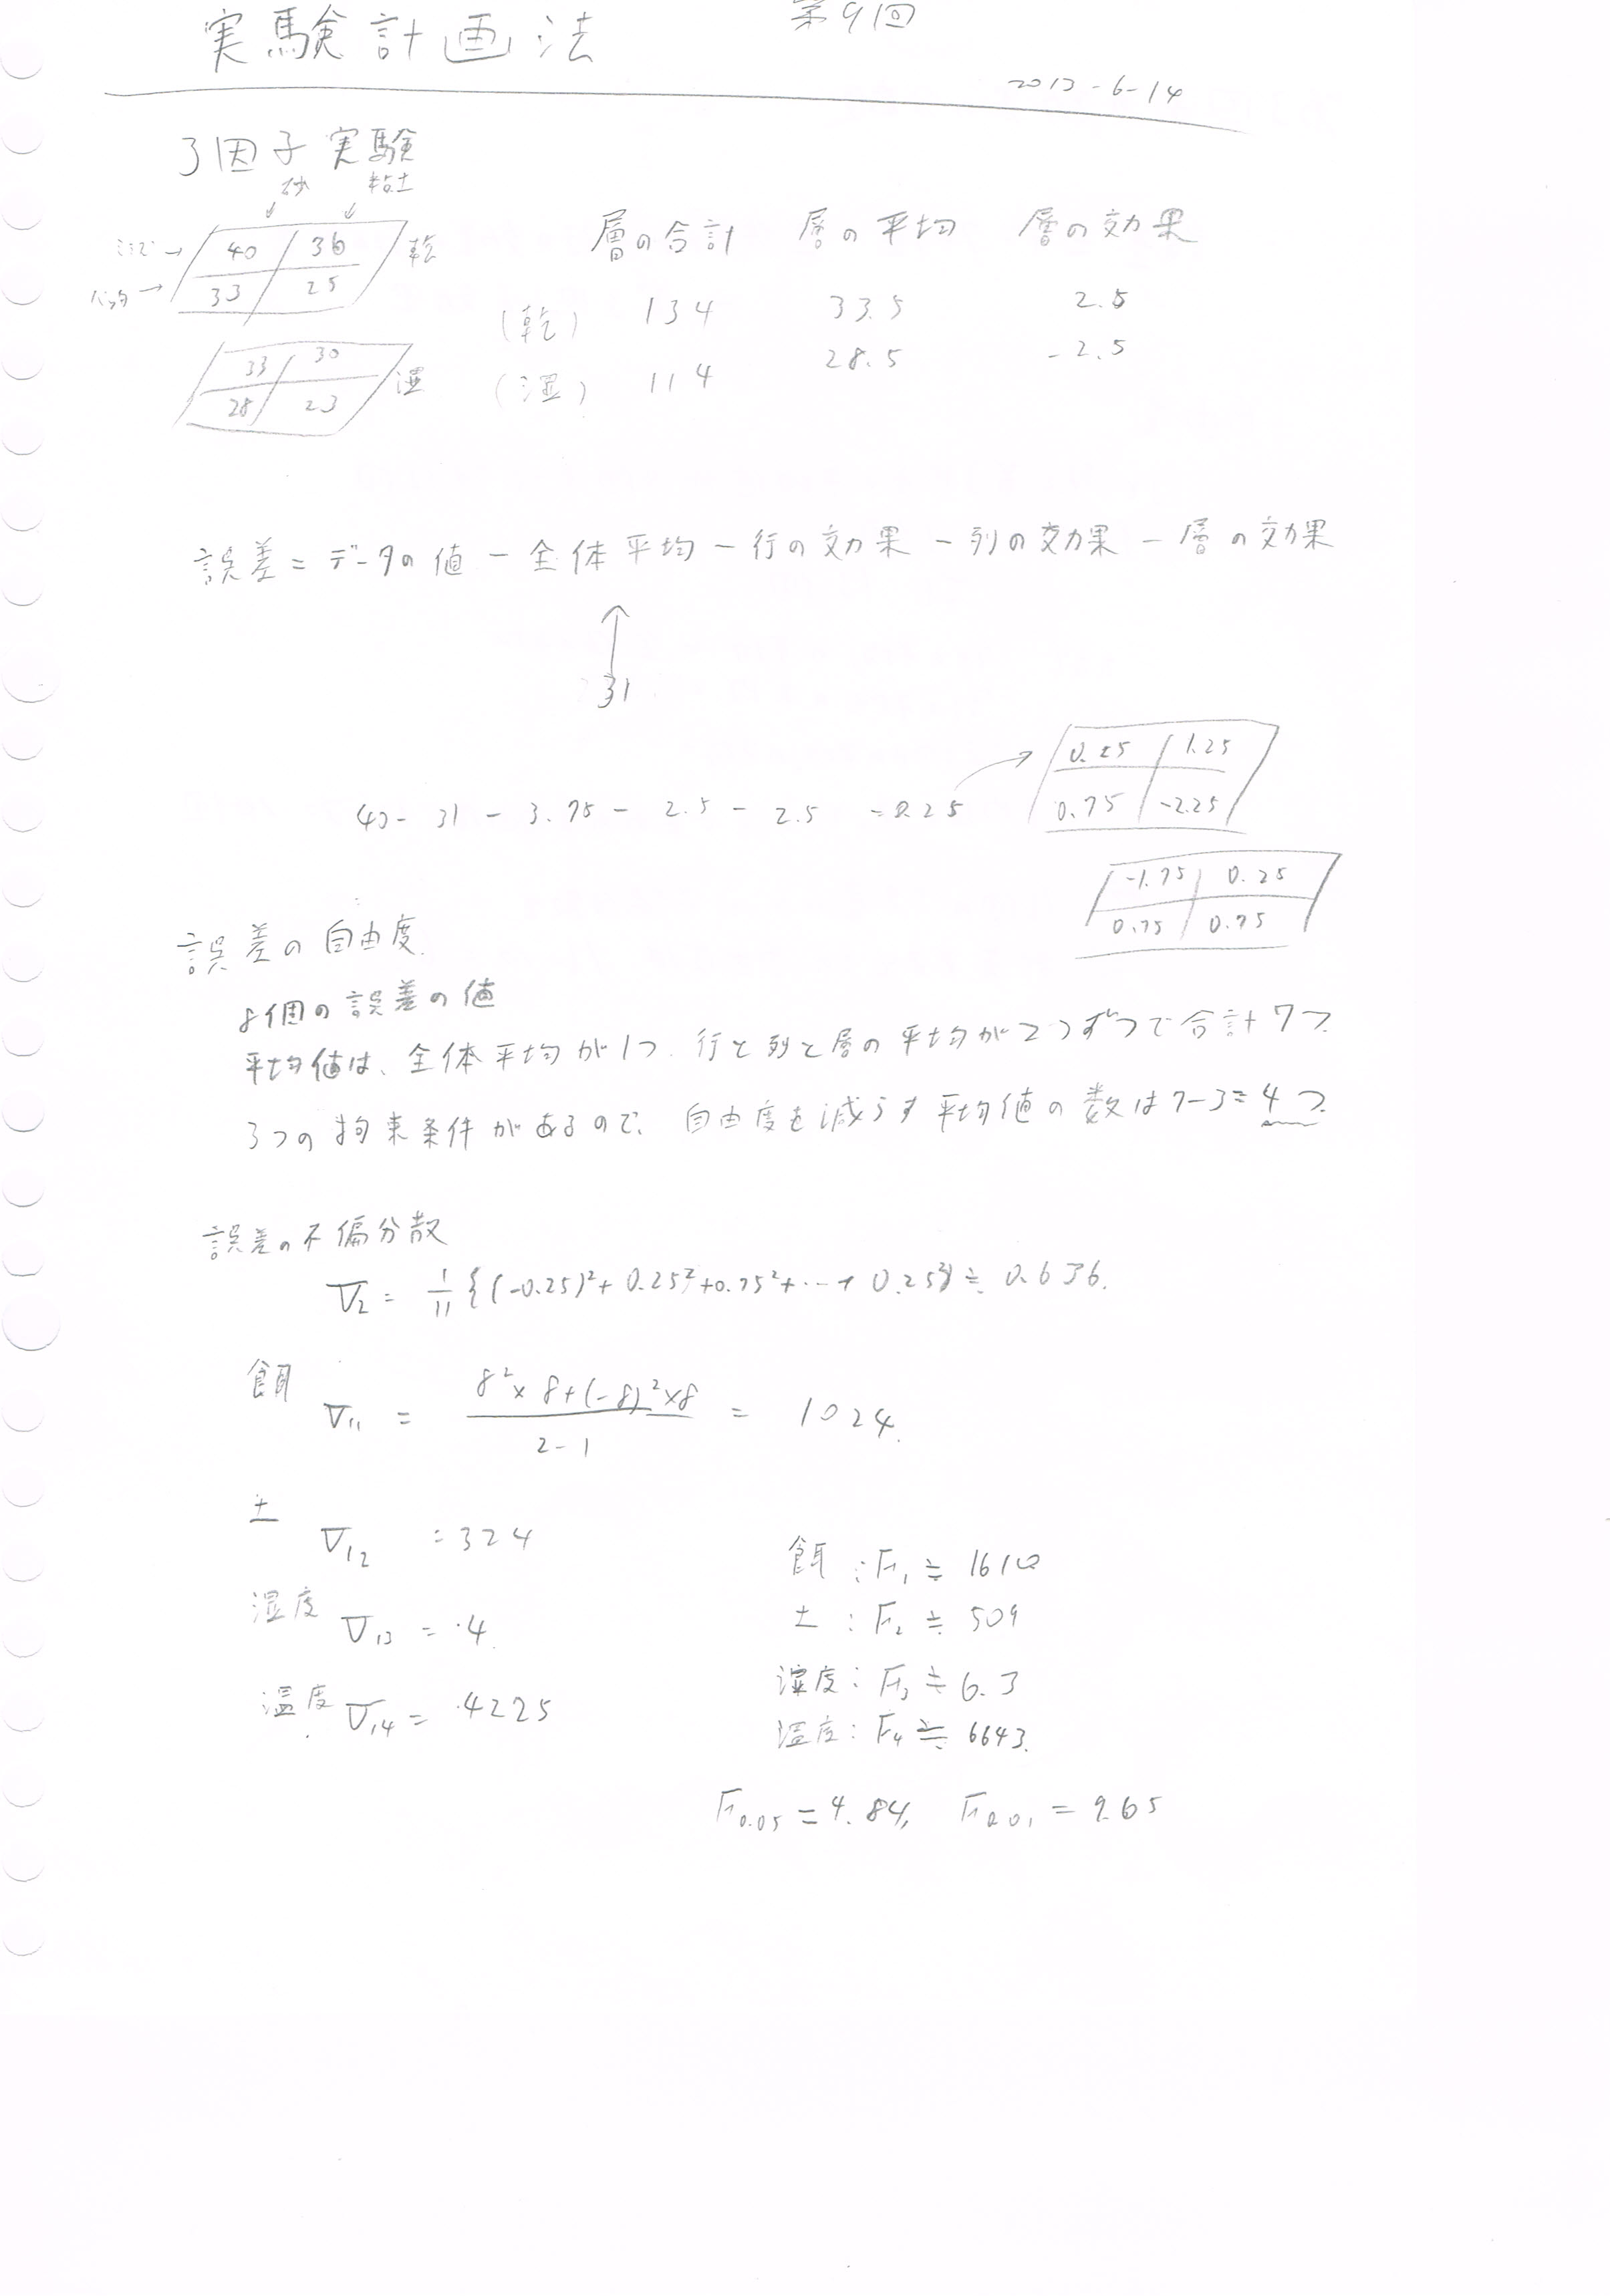 実験計画法 第9回
2013-6-14
3因子実験
砂 粘土
ミミズ→ 40 36 乾
バッタ→ 33 25
33 30 湿
28 23
層の合計 層の平均 層の効果
(乾) 134 33.5 2.5
(湿) 114 28.5 -2.5
誤差=データの値-全体平均-行の効果-列の効果-層の効果
↑
31
40-31-3.75-2.5-2.5=0.25
0.25 1.25
0.75 -2.25
-1.75 0.25
0.75 0.75
誤差の自由度
8個の誤差の値
平均値は、全体平均が1つ 行と列と層の平均が2つずつで合計7つ
3つの拘束条件があるので、自由度を減らす平均値の数は7-3=4つ
誤差の不偏分散
V₂ = 1/11 {(-0.25)²+0.25²+0.75²+…+0.25²}≒0.636.
餌
V₁₁ = (8²×8+(-8)²×8)/(2-1) = 1024.
土
V₁₂ =324
湿度 V₁₃ = 4.
温度 V₁₄ = 4225
餌:F₁≒1610
土:F₂≒509
湿度:F₃≒6.3
温度:F₄≒6643.
F0.05=4.84, F0.01=9.65